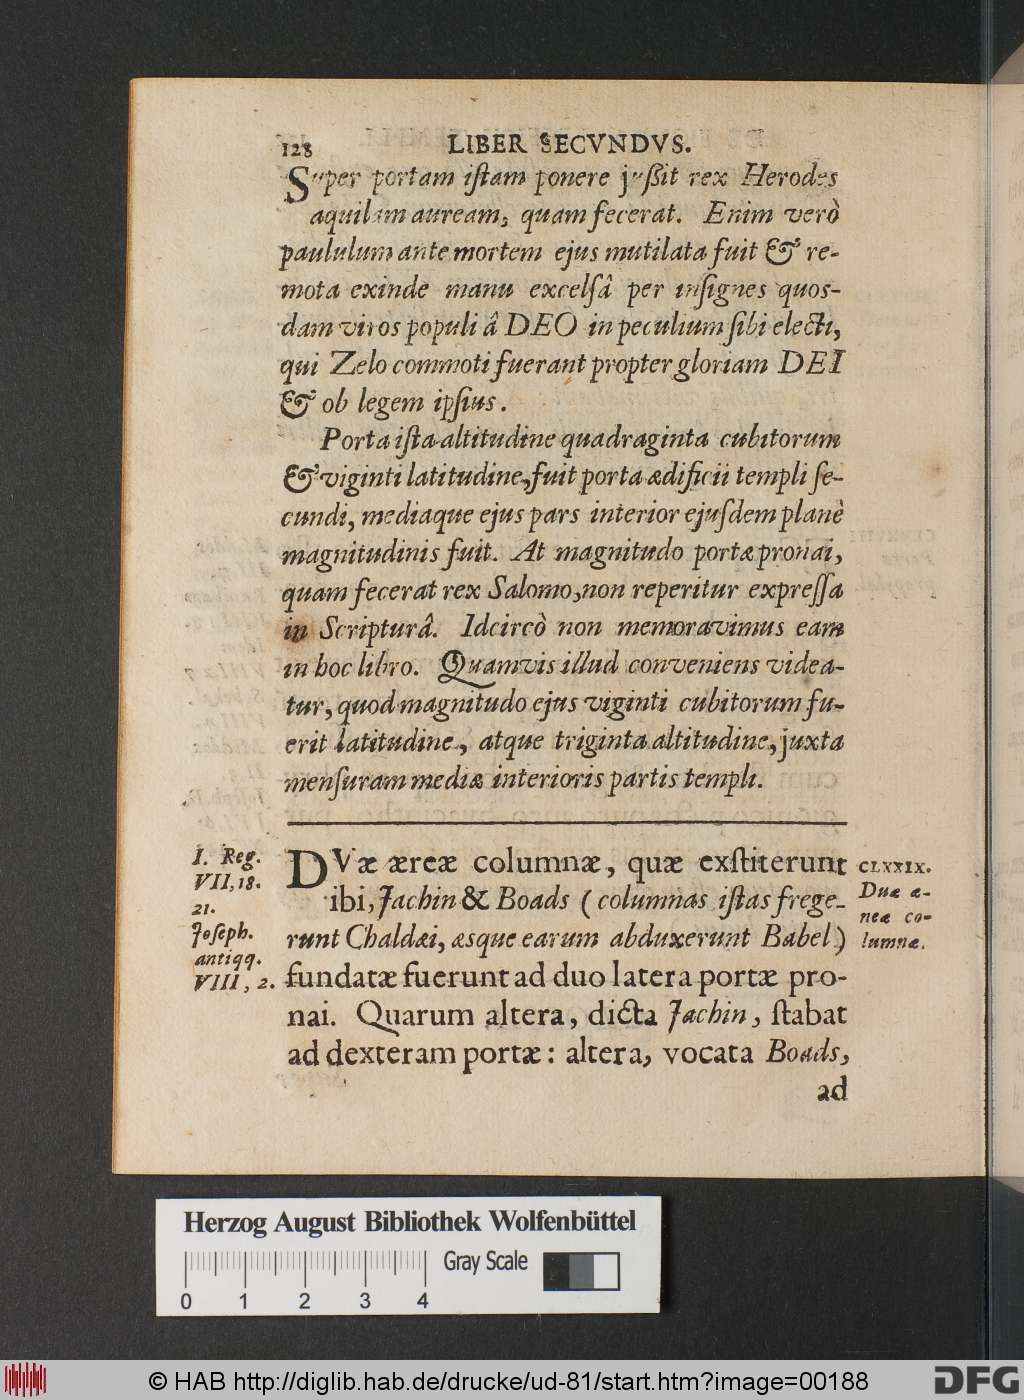 128 LIBER SECVNDVS.
Super portam iſtam ponere juſsit rex Herodes
aquilam auream, quam fecerat. Enim verò
paululum ante mortem ejus mutilata fuit & re-
mota exinde manu excelſâ per inſignes quos-
dam viros populi â DEO in peculium ſibi electi,
qui Zelo commoti fuerant propter gloriam DEI
& ob legem ipſius.
Porta iſta altitudine quadraginta cubitorum
& viginti latitudine, fuit porta ædificii templi ſe-
cundi, mediaque ejus pars interior ejuſdem planè
magnitudinis fuit. At magnitudo portæ pronai,
quam fecerat rex Salomo, non reperitur expreſſa
in Scripturâ. Idcircò non memoravimus eam
in hoc libro. Quamvis illud conveniens videa-
tur, quod magnitudo ejus viginti cubitorum fu-
erit latitudine, atque triginta altitudine, juxta
menſuram mediæ interioris partis templi.
I. Reg.
VII, 18.
21.
Joſeph.
antiqq.
VIII, 2.
DVæ æreæ columnæ, quæ exſtiterunt
ibi, Jachin & Boads (columnas iſtas frege-
runt Chaldæi, æsque earum abduxerunt Babel)
fundatæ fuerunt ad duo latera portæ pro-
nai. Quarum altera, dicta Jachin, ſtabat
ad dexteram portæ: altera, vocata Boads,
ad
CLXXIX.
Duæ æ-
neæ co-
lumnæ.
Herzog August Bibliothek Wolfenbüttel
Gray Scale
0 1 2 3 4
© HAB http://diglib.hab.de/drucke/ud-81/start.htm?image=00188
DFG